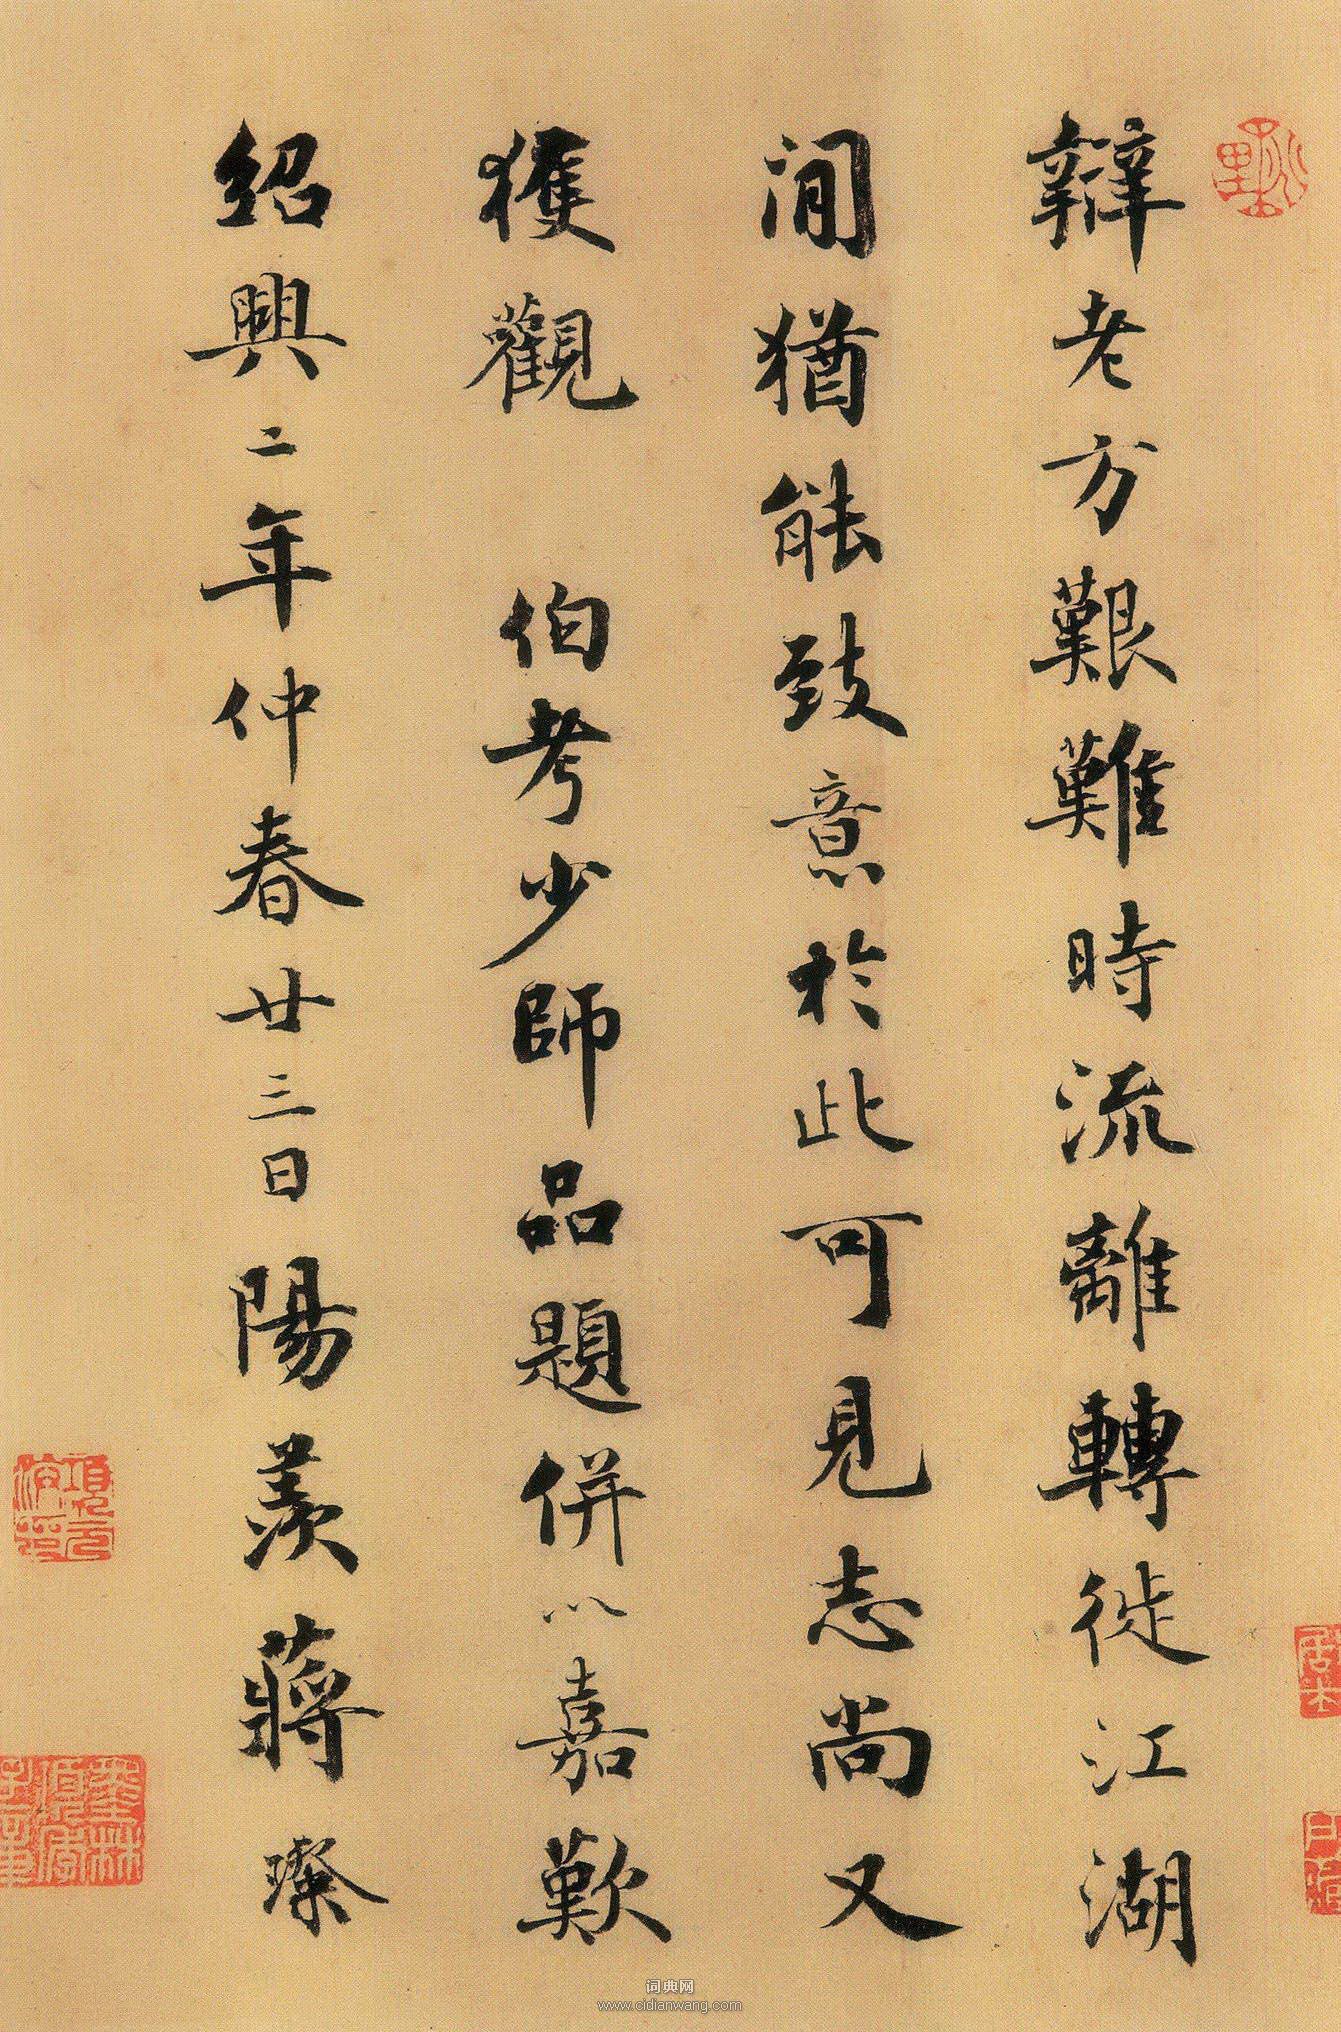 辯老方艱難時流離轉徙江湖
間猶能致意於此可見志尚又
獲觀 伯考少師品題併以嘉歎
紹興二年仲春廿三日陽羨蔣璨
項元汴印
墨林
詞典网
www.cidianwang.com